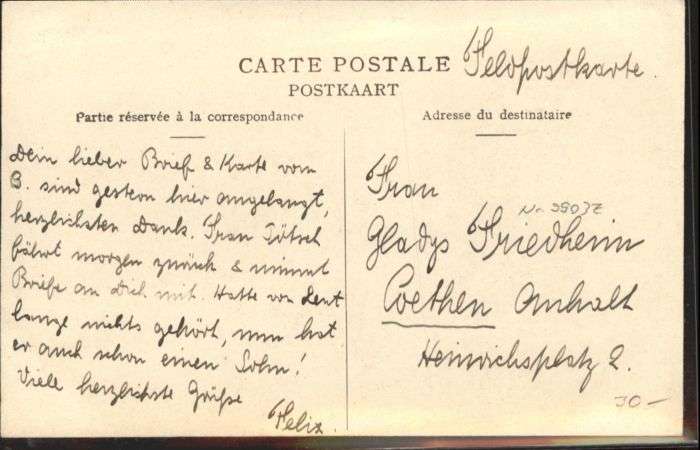 CARTE POSTALE
Feldpostkarte.
POSTKAART
Partie réservée à la correspondance
Adresse du destinataire
Dein lieber Brief & Karte vom
B. sind gestern hier angelangt,
herzlichsten Dank. Frau
fährt morgen zurück & nimmt
Briefe an Dich mit. Hatte von
lange nichts gehört, nun hat
er auch schon einen Sohn!
Viele herzlichste Grüße
Felix.
Frau
Gladys Friedheim
Coethen Anhalt
Heinrichsplatz 2.
30-